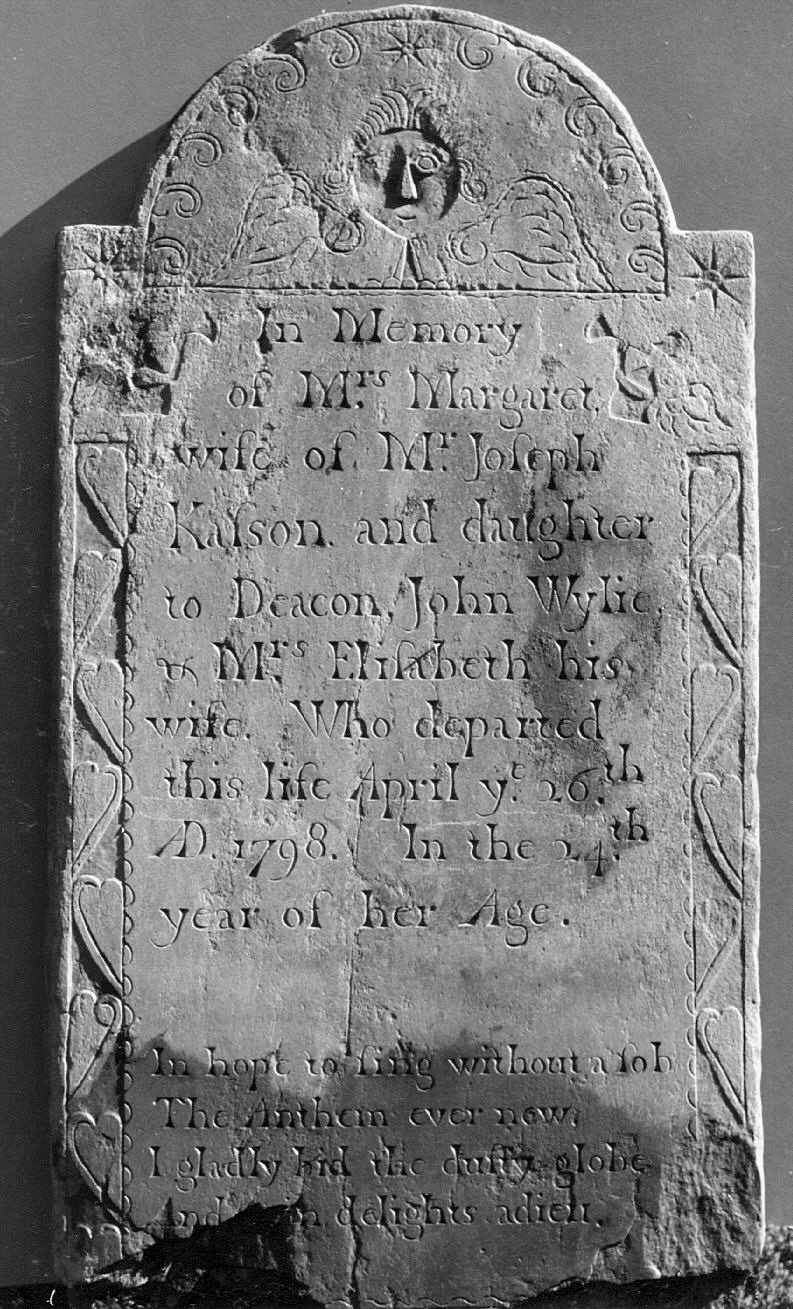 In Memory
of M.rs Margaret,
wiſe of M.r Joſeph
Kaſson, and daughter
to Deacon, John Wylie,
& M.rs Eliſabeth his
wiſe. Who departed
this liſe April y.e 26.th
AD. 1798. In the 24.th
year of her Age.
In hope to ſing without a ſob
The Anthem ever new,
I gladly bid the duſty globe
And delights adieu.